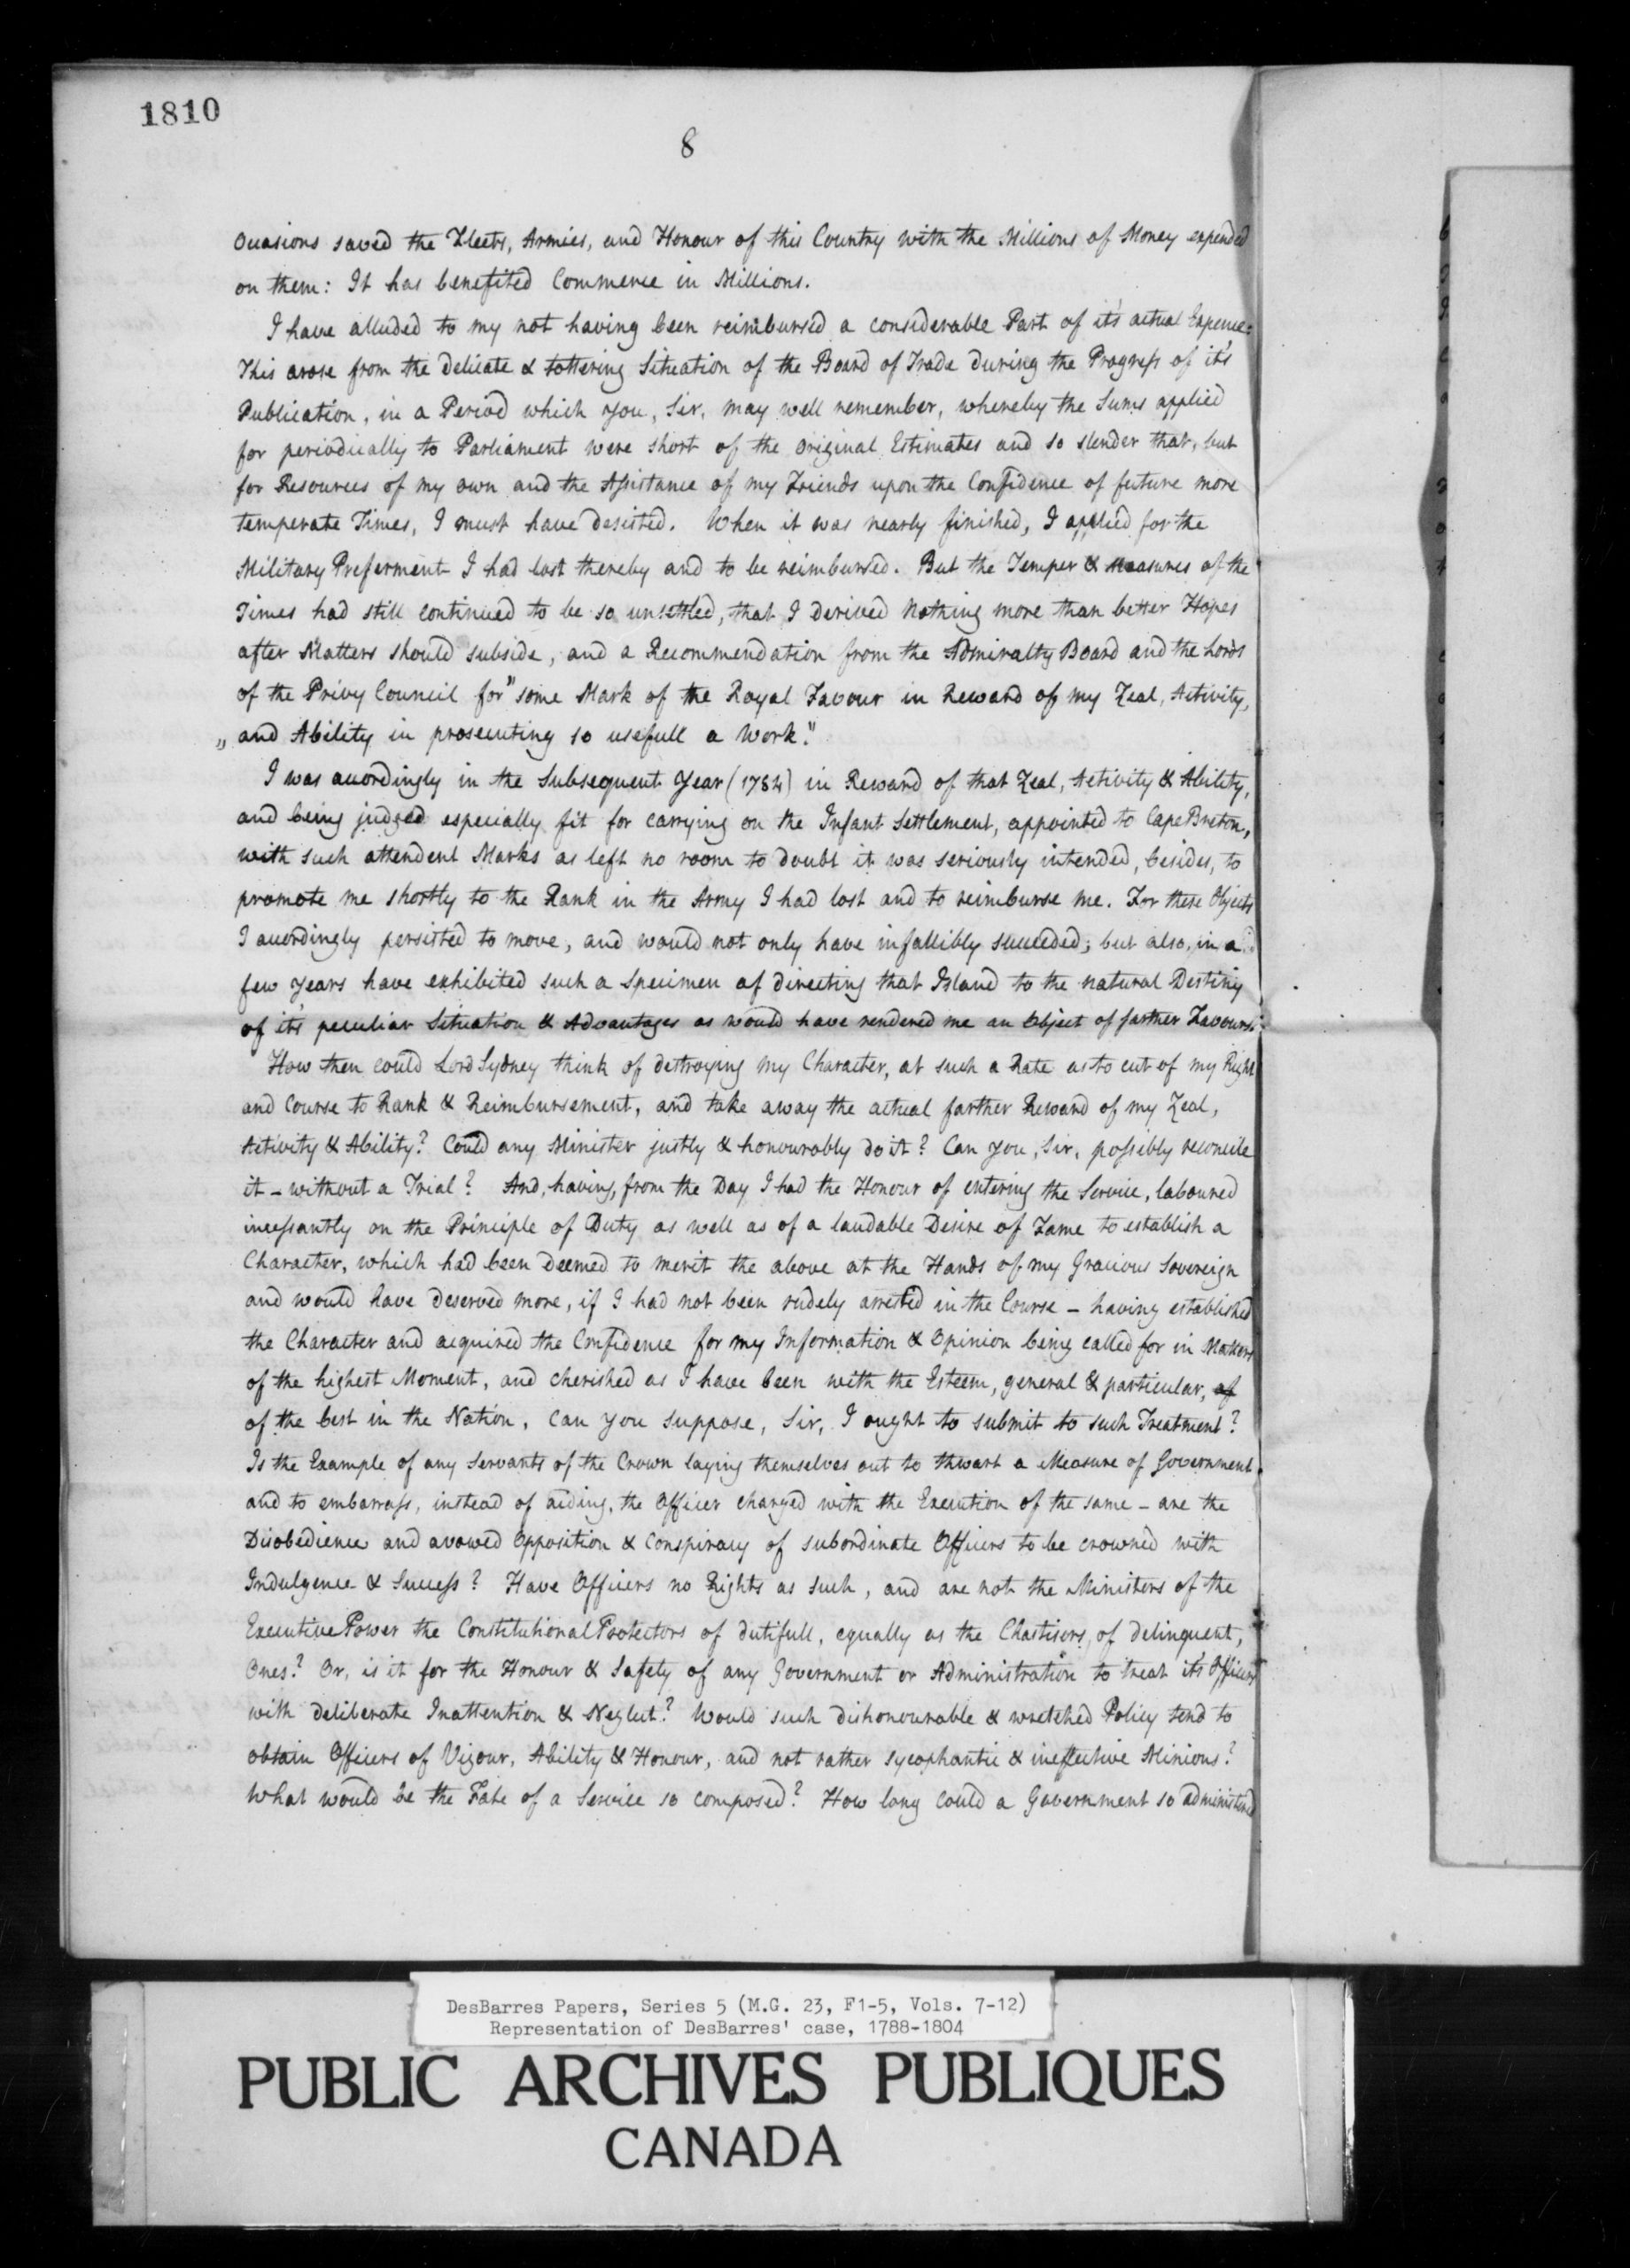 1810
8
Occasions saved the Fleets, Armies, and Honour of this Country with the Millions of Money expended
on them: It has benefited Commerce in Millions.
I have alluded to my not having been reimbursed a considerable Part of it's actual Expence:
This arose from the delicate & tottering Situation of the Board of Trade during the Progress of it's
Publication, in a Period which you, Sir, may well remember, whereby the Sums applied
for periodically to Parliament were short of the original Estimates and so slender that, but
for Resources of my own and the Assistance of my Friends upon the Confidence of future more
temperate Times, I must have desisted. When it was nearly finished, I applied for the
Military Preferment I had lost thereby and to be reimbursed. But the Temper & Measures of the
Times had still continued to be so unsettled, that I derived nothing more than better Hopes
after Matters should subside, and a Recommendation from the Admiralty Board and the Lords
of the Privy Council for "some Mark of the Royal Favour in Reward of my Zeal, Activity,
„ and Ability in prosecuting so usefull a Work."
I was accordingly in the Subsequent Year (1784) in Reward of that Zeal, Activity & Ability,
and being judged especially fit for carrying on the Infant Settlement, appointed to Cape Breton,
with such attendent Marks as left no room to doubt it was seriously intended, besides, to
promote me shortly to the Rank in the Army I had lost and to reimburse me. For these Objects
I accordingly persisted to move, and would not only have infallibly succeeded; but also, in a
few years have exhibited such a Specimen of directing that Island to the natural Destiny
of it's peculiar Situation & Advantages as would have rendered me an Object of farther Favours.
How then could Lord Sydney think of destroying my Character, at such a Rate as to cut of my Right
and Course to Rank & Reimbursement, and take away the actual farther Reward of my Zeal,
Activity & Ability? Could any Minister justly & honourably do it? Can you, Sir, possibly reconcile
it - without a Trial? And, having, from the Day I had the Honour of entering the Service, laboured
incessantly on the Principle of Duty as well as of a laudable Desire of Fame to establish a
Character, which had been deemed to merit the above at the Hands of my Gracious Sovereign
and would have deserved more, if I had not been rudely arrested in the Course - having established
the Character and acquired the Confidence for my Information & Opinion being called for in Matters
of the highest Moment, and cherished as I have been with the Esteem, general & particular, of
of the best in the Nation, can you suppose, Sir, I ought to submit to such Treatment?
Is the Example of any Servants of the Crown laying themselves out to thwart a Measure of Government
and to embarrass, instead of aiding, the Officer charged with the Execution of the same - are the
Disobedience and avowed Opposition & Conspiracy of subordinate Officers to be crowned with
Indulgence & Success? Have Officers no Rights as such, and are not the Ministers of the
Executive Power the Constitutional Protectors of dutifull, equally as the Chastisers, of delinquent,
Ones? Or, is it for the Honour & Safety of any Government or Administration to treat it's Officers
with deliberate Inattention & Neglect? Would such dishonourable & wretched Policy tend to
obtain Officers of Vigour, Ability & Honour, and not rather sycophantic & ineffective Minions?
What would be the Fate of a Service so composed? How long could a Government so administered
DesBarres Papers, Series 5 (M.G. 23, F1-5, Vols. 7-12)
Representation of DesBarres' case, 1788-1804
PUBLIC ARCHIVES PUBLIQUES
CANADA